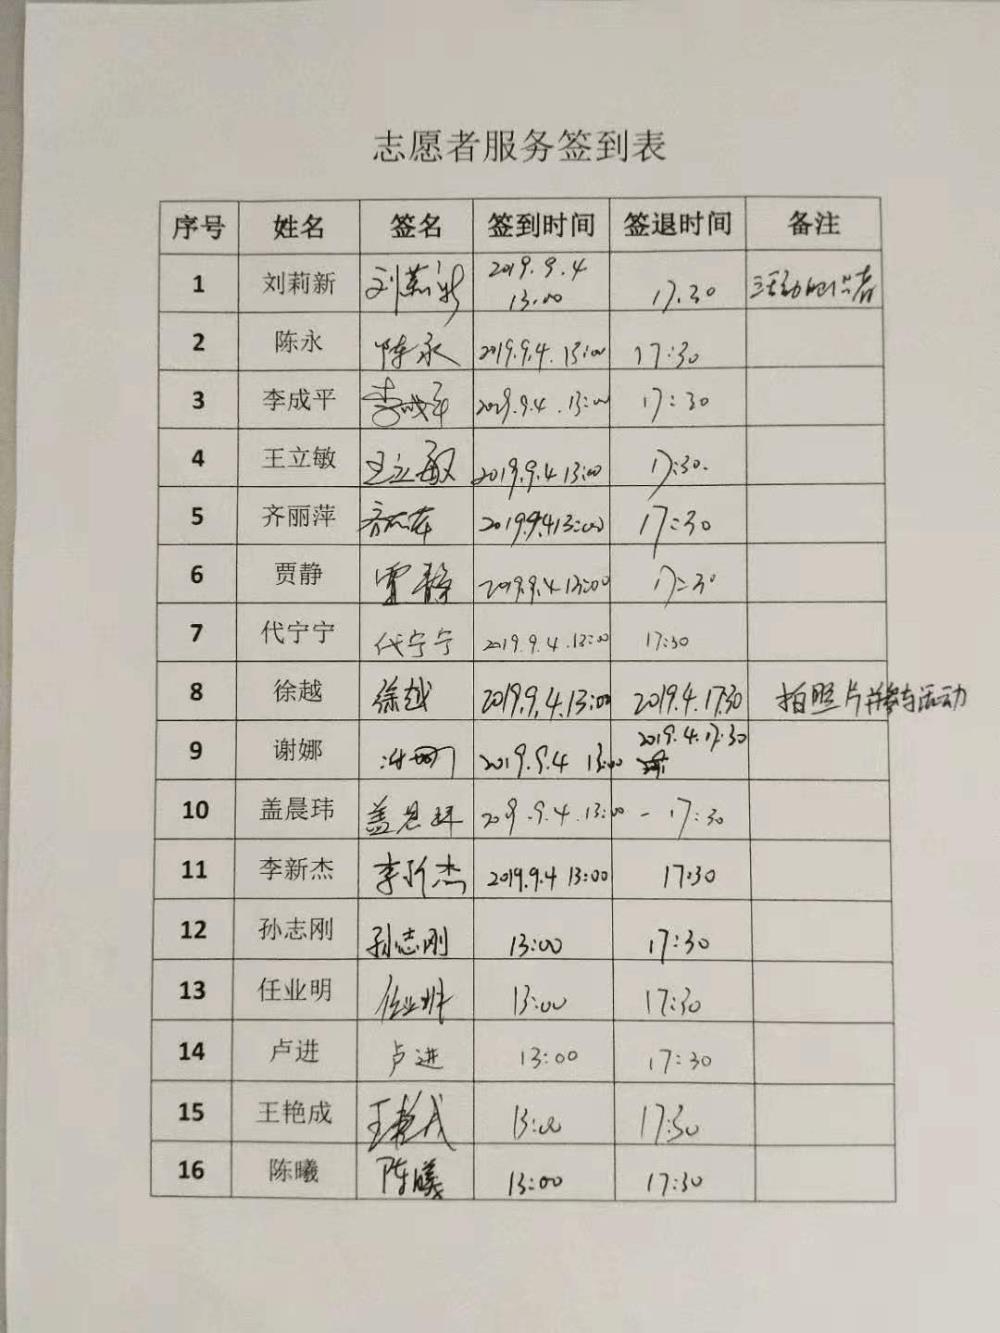 志愿者服务签到表
序号 姓名 签名 签到时间 签退时间 备注
1 刘莉新 刘莉新 2019.9.4 13.00 17.30
2 陈永 陈永 2019.9.4. 13:00 17:30
3 李成平 李成平 2019.9.4. 13:00 17:30
4 王立敏 王立敏 2019.9.4 13:00 17:30.
5 齐丽萍 齐丽萍 2019.9.4 13:00 17:30
6 贾静 贾静 2019.9.4 13:00 17:30
7 代宁宁 代宁宁 2019.9.4.13:00 17:30
8 徐越 徐越 2019.9.4.13:00 2019.4.17:30 拍照片并参与活动
9 谢娜 谢娜 2019.9.4 13:00 2019.4.17:30
10 盖晨玮 盖晨玮 2019.9.4.13:00 - 17:30
11 李新杰 李新杰 2019.9.4 13:00 17:30
12 孙志刚 孙志刚 13:00 17:30
13 任业明 任业明 13:00 17:30
14 卢进 卢进 13:00 17:30
15 王艳成 王艳成 13:00 17:30
16 陈曦 陈曦 13:00 17:30